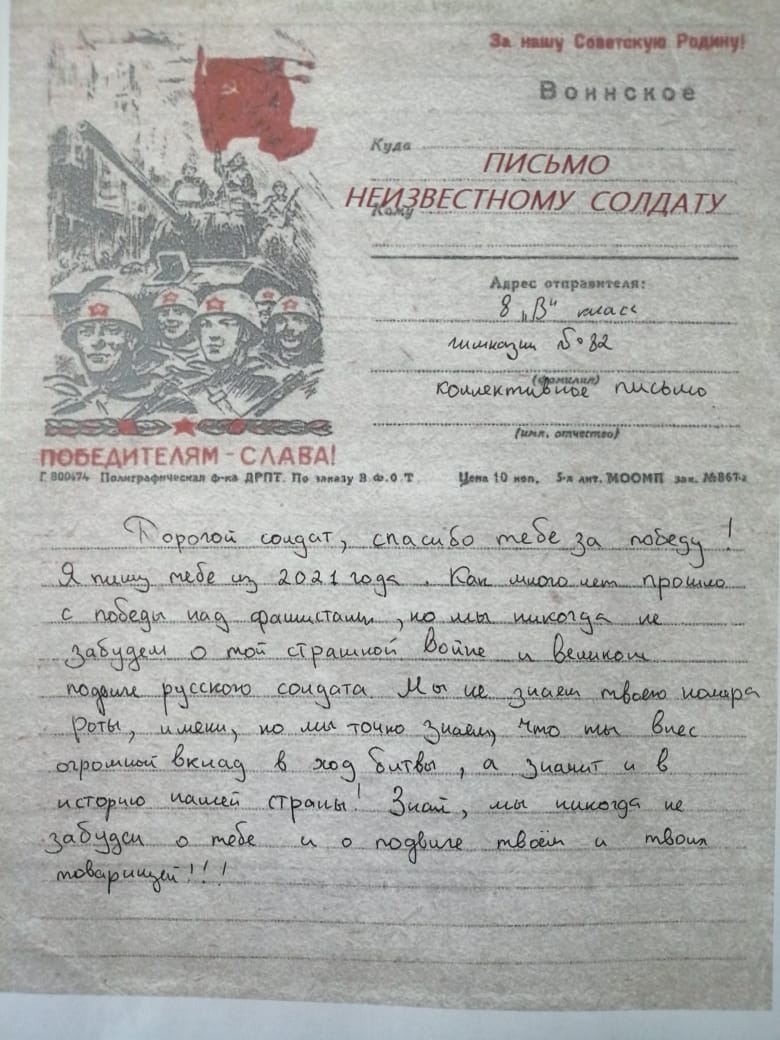 За нашу Советскую Родину!
Воинское
Куда
ПИСЬМО
НЕИЗВЕСТНОМУ СОЛДАТУ
Кому
Адрес отправителя:
8 „В" класс
гимназии №82
(фамилия)
коллективное письмо
(имя, отчество)
ПОБЕДИТЕЛЯМ - СЛАВА!
Г 800474 Полиграфическая ф-ка ДРПТ. По заказу В.Ф.О.Т. Цена 10 коп. 5-я лит. МООМП зак. №867-а
Дорогой солдат, спасибо тебе за победу!
Я пишу тебе из 2021 года. Как много лет прошло
с победы над фашистами, но мы никогда не
забудем о той страшной войне и великом
подвиге русского солдата. Мы не знаем твоего номера
роты, имени, но мы точно знаем, что ты внес
огромной вклад в ход битвы, а значит и в
историю нашей страны! Знай, мы никогда не
забудем о тебе и о подвиге твоём и твоих
товарищей!!!